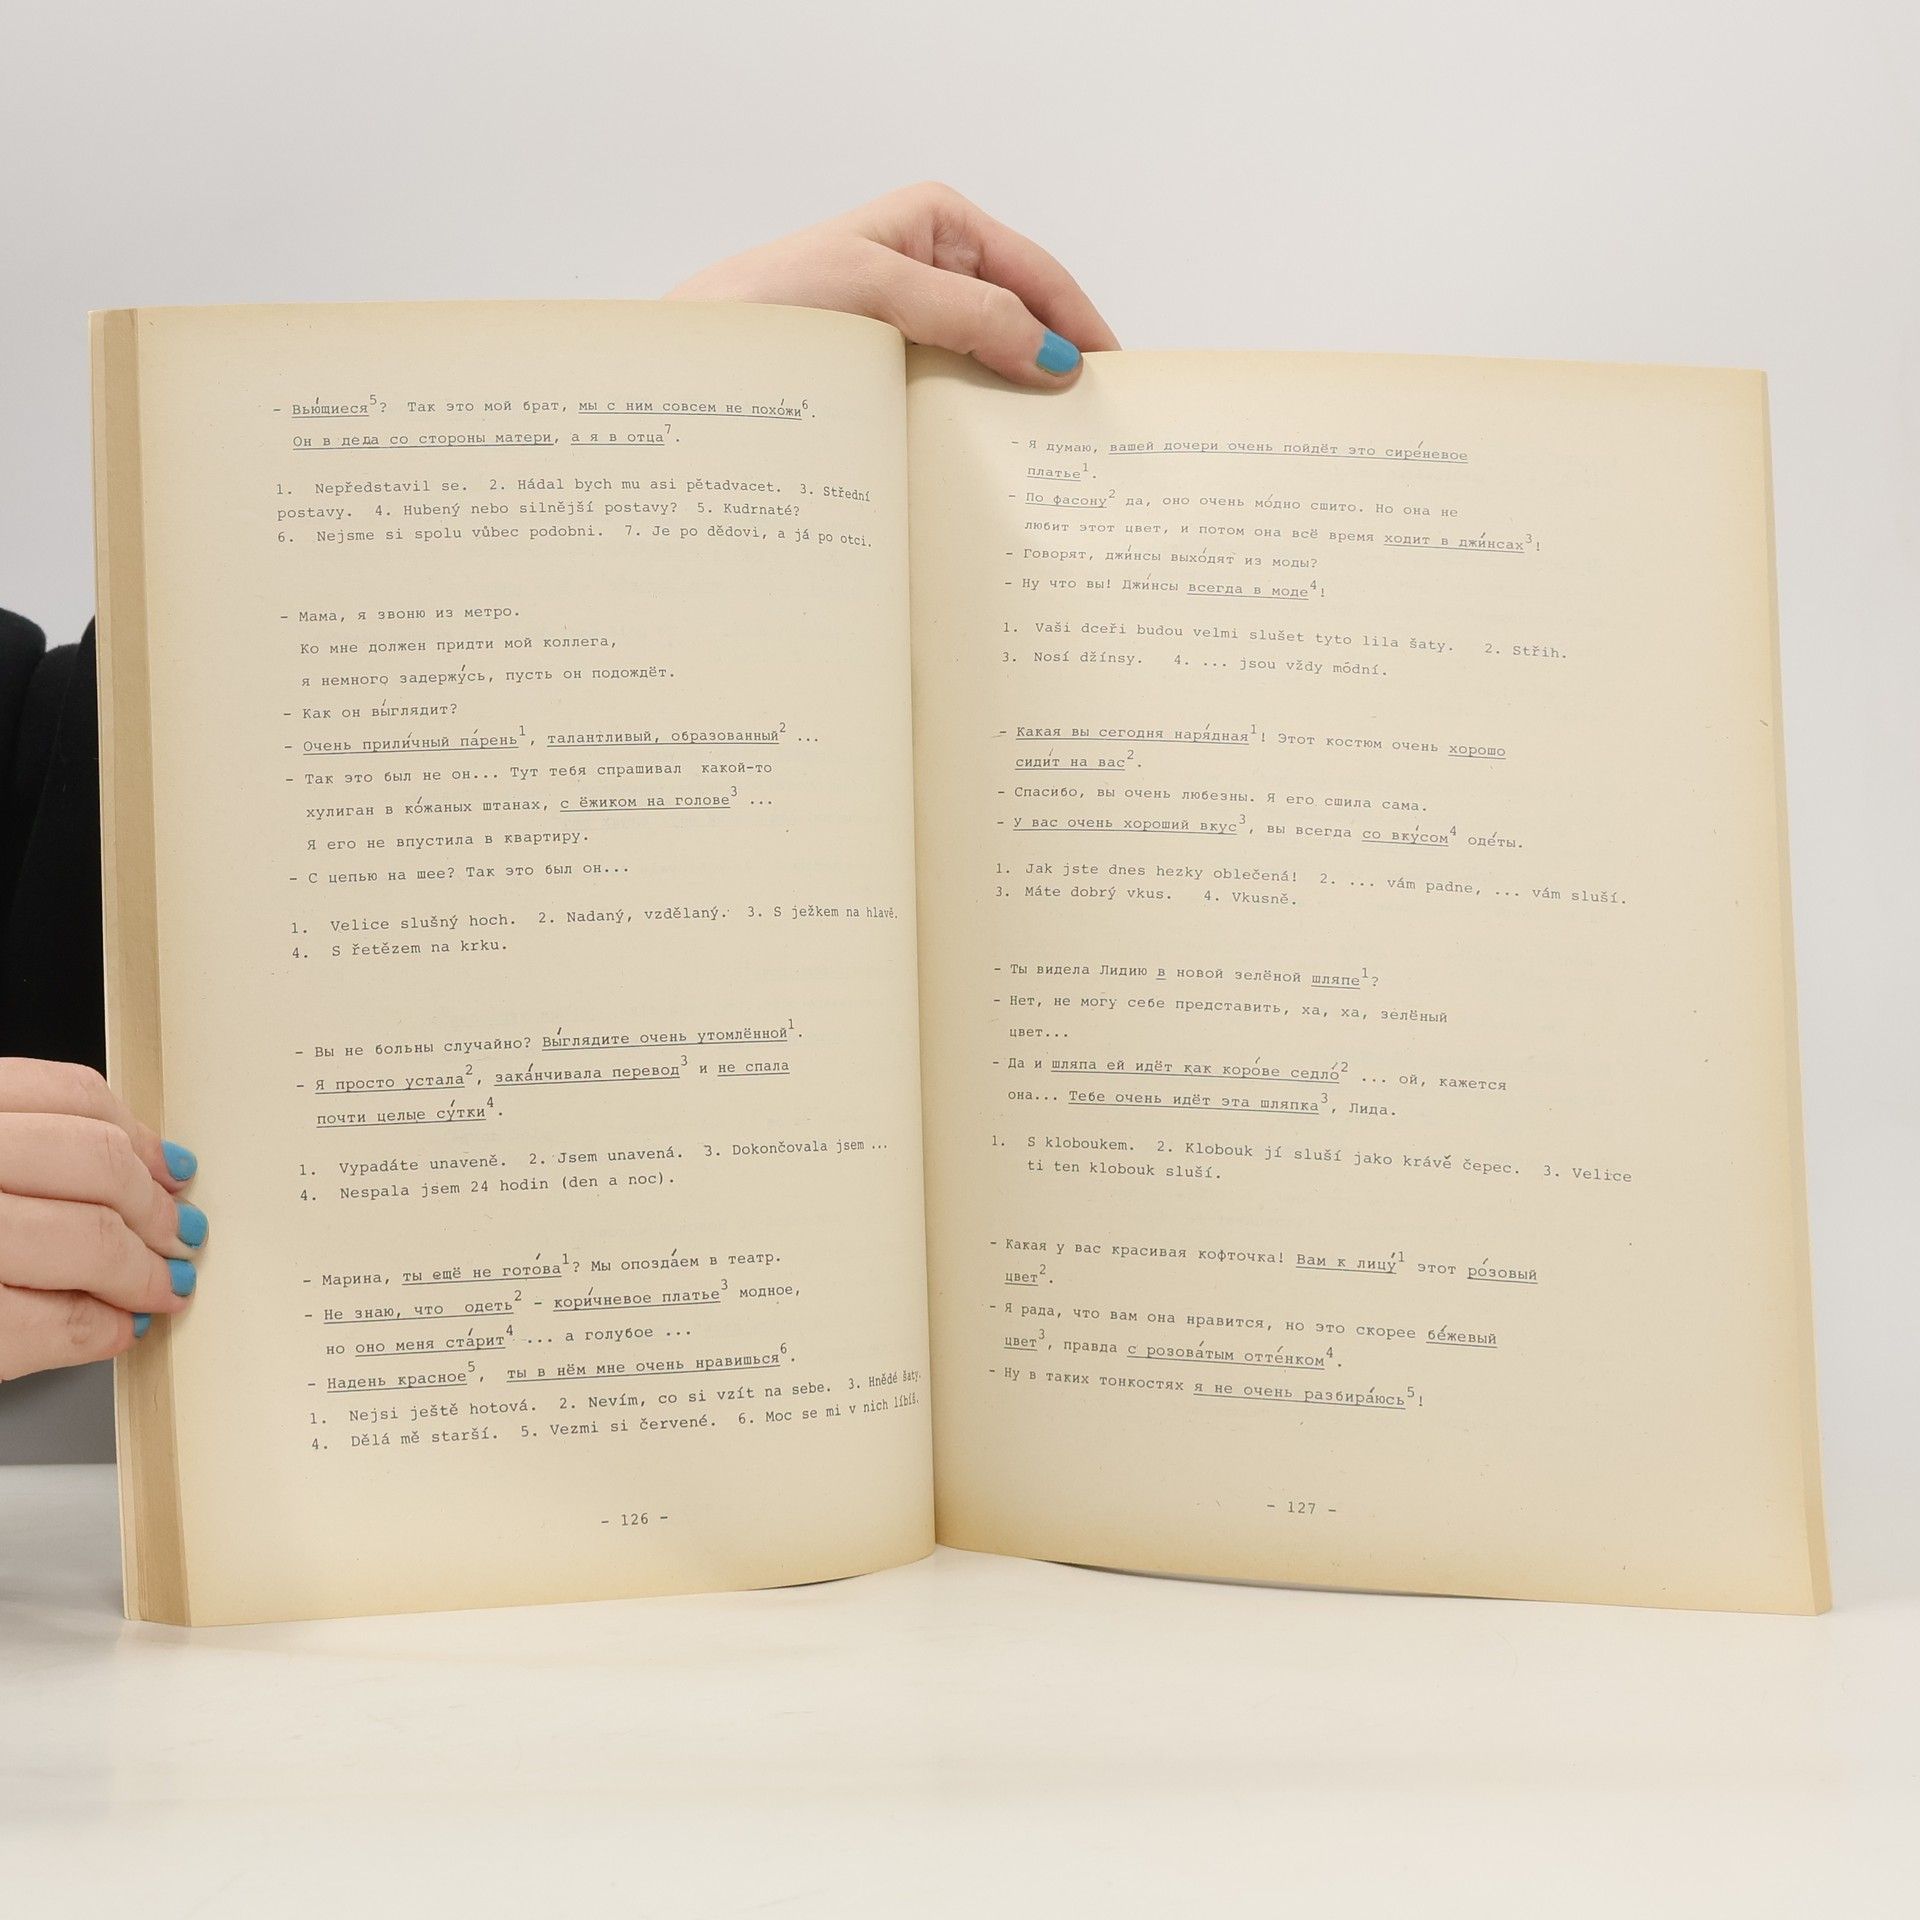 - Вью́щиеся⁵? Так это мой брат, мы с ним совсем не похо́жи⁶.
Он в деда со стороны матери, а я в отца⁷.
1. Nepředstavil se. 2. Hádal bych mu asi pětadvacet. 3. Střední
postavy. 4. Hubený nebo silnější postavy? 5. Kudrnaté?
6. Nejsme si spolu vůbec podobni. 7. Je po dědovi, a já po otci.
- Мама, я звоню из метро.
Ко мне должен придти мой коллега,
я немного задержу́сь, пусть он подождёт.
- Как он вы́глядит?
- Очень прили́чный па́рень¹, талантливый, образованный² ...
- Так это был не он... Тут тебя спрашивал какой-то
хулиган в ко́жаных штанах, с ёжиком на голове³ ...
Я его не впустила в квартиру.
- С цепью на шее? Так это был он...
1. Velice slušný hoch. 2. Nadaný, vzdělaný. 3. S ježkem na hlavě.
4. S řetězem na krku.
- Вы не больны случайно? Вы́глядите очень утомлённой¹.
- Я просто устала², зака́нчивала перевод³ и не спала
почти целые су́тки⁴.
1. Vypadáte unaveně. 2. Jsem unavená. 3. Dokončovala jsem ...
4. Nespala jsem 24 hodin (den a noc).
- Марина, ты ещё не гото́ва¹? Мы опозда́ем в театр.
- Не знаю, что одеть² - кори́чневое платье³ модное,
но оно меня ста́рит⁴ ... а голубое ...
- Надень красное⁵, ты в нём мне очень нравишься⁶.
1. Nejsi ještě hotová. 2. Nevím, co si vzít na sebe. 3. Hnědé šaty.
4. Dělá mě starší. 5. Vezmi si červené. 6. Moc se mi v nich líbíš.
- 126 -
- Я думаю, вашей дочери очень пойдёт это сире́невое
платье¹.
- По фасону² да, оно очень мо́дно сшито. Но она не
любит этот цвет, и потом она всё время ходит в джи́нсах³!
- Говорят, джи́нсы выхо́дят из моды?
- Ну что вы! Джи́нсы всегда в моде⁴!
1. Vaši dceři budou velmi slušet tyto lila šaty. 2. Střih.
3. Nosí džínsy. 4. ... jsou vždy módní.
- Какая вы сегодня наря́дная¹! Этот костюм очень хорошо
сиди́т на вас².
- Спасибо, вы очень любезны. Я его сшила сама.
- У вас очень хороший вкус³, вы всегда со вку́сом⁴ оде́ты.
1. Jak jste dnes hezky oblečená! 2. ... vám padne, ... vám sluší.
3. Máte dobrý vkus. 4. Vkusně.
- Ты видела Лидию в новой зелёной шляпе¹?
- Нет, не могу себе представить, ха, ха, зелёный
цвет...
- Да и шляпа ей идёт как коро́ве седло́² ... ой, кажется
она... Тебе очень идёт эта шляпка³, Лида.
1. S kloboukem. 2. Klobouk jí sluší jako krávě čepec. 3. Velice
ti ten klobouk sluší.
- Какая у вас красивая кофточка! Вам к лицу́¹ этот ро́зовый
цвет².
- Я рада, что вам она нравится, но это скорее бе́жевый
цвет³, правда с розова́тым отте́нком⁴.
- Ну в таких тонкостях я не очень разбира́юсь⁵!
- 127 -